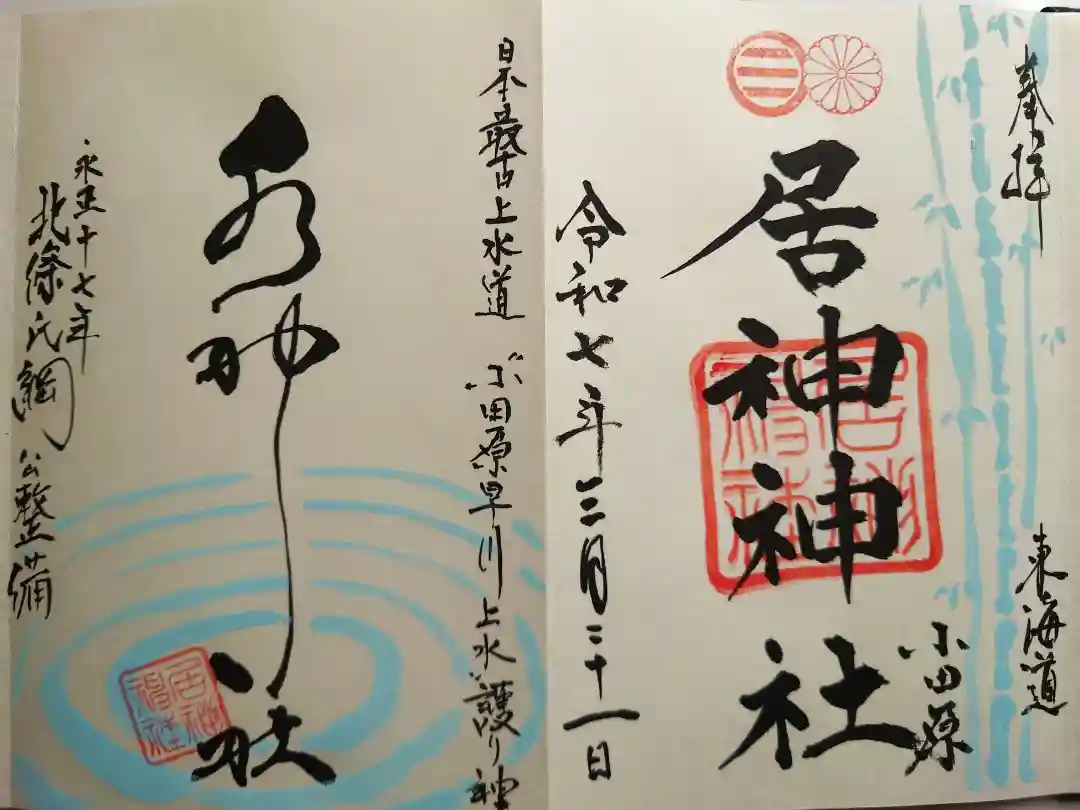 奉拝
東海道
小田原
居神神社
令和七年三月二十一日
日本最古上水道　小田原早川上水護り神
水神社
永正十七年
北條氏綱公整備
居神神社